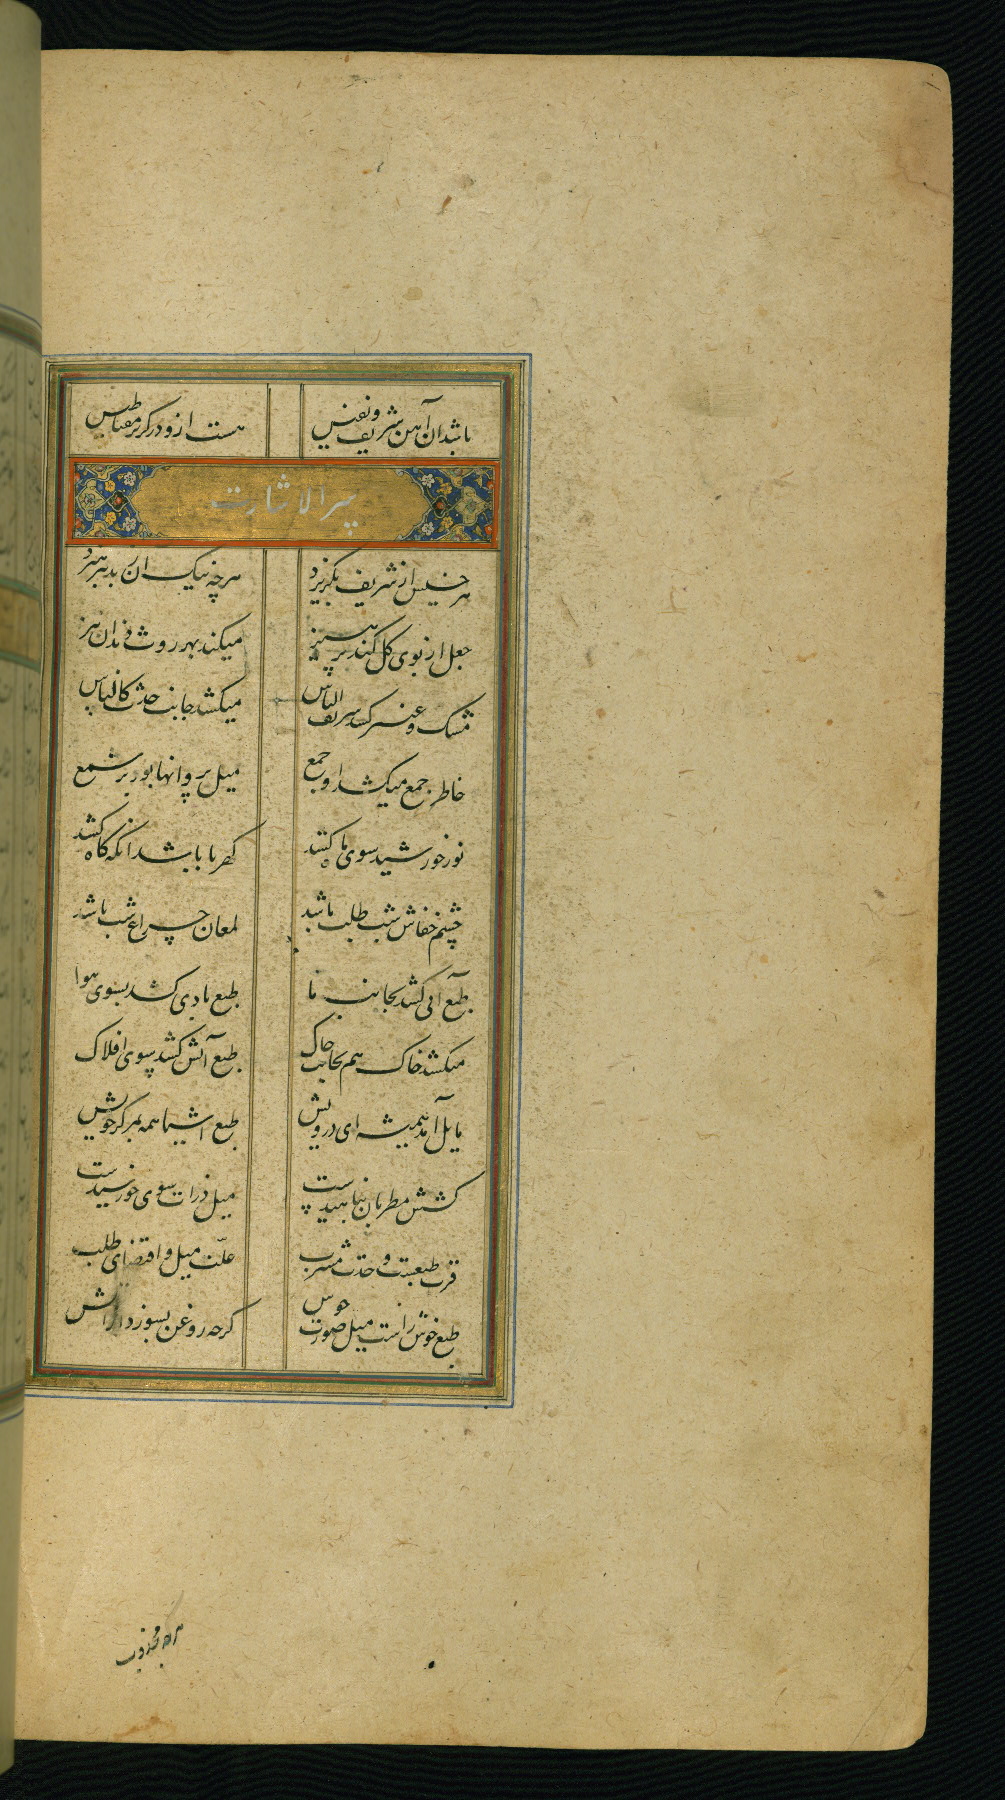 باشد آن آهن شریف و نفیس
هست از و در کریز مقناطیس
سر الاشارت
هر خسیس از شریف بگریزد
هر چه نیک ان ز بد بپرهیزد
جعل از بوی کل کند پرهیز
میکند بهر روث دندان تیز
مشک و عنبر کشد شریف الناس
میکشد جانب حدث کناس
خاطر جمع میکشد او جمع
میل پروانها بود بر شمع
نور خورشید سوی ماه کشد
کهربا باشد آنکه کاه کشد
چشم خفاش شب طلب باشد
لمعان چراغ شب باشد
طبع آبی کشد بجانب ما
طبع بادی کشد بسوی هوا
میکشد خاک هم بجانب خاک
طبع آتش کشد سوی افلاک
مایل آمد همیشه ای درویش
طبع اشیا همه بمرکز خویش
کشش مطربان بناهیدست
میل ذرات سوی خورشیدست
قرب طبعیت وحدت مشرب
علت میل و اقتضای طلب
طبع خوش راست میل صورت خوش
کرچه روغن بسوزد از آتش
هر که مجذوب